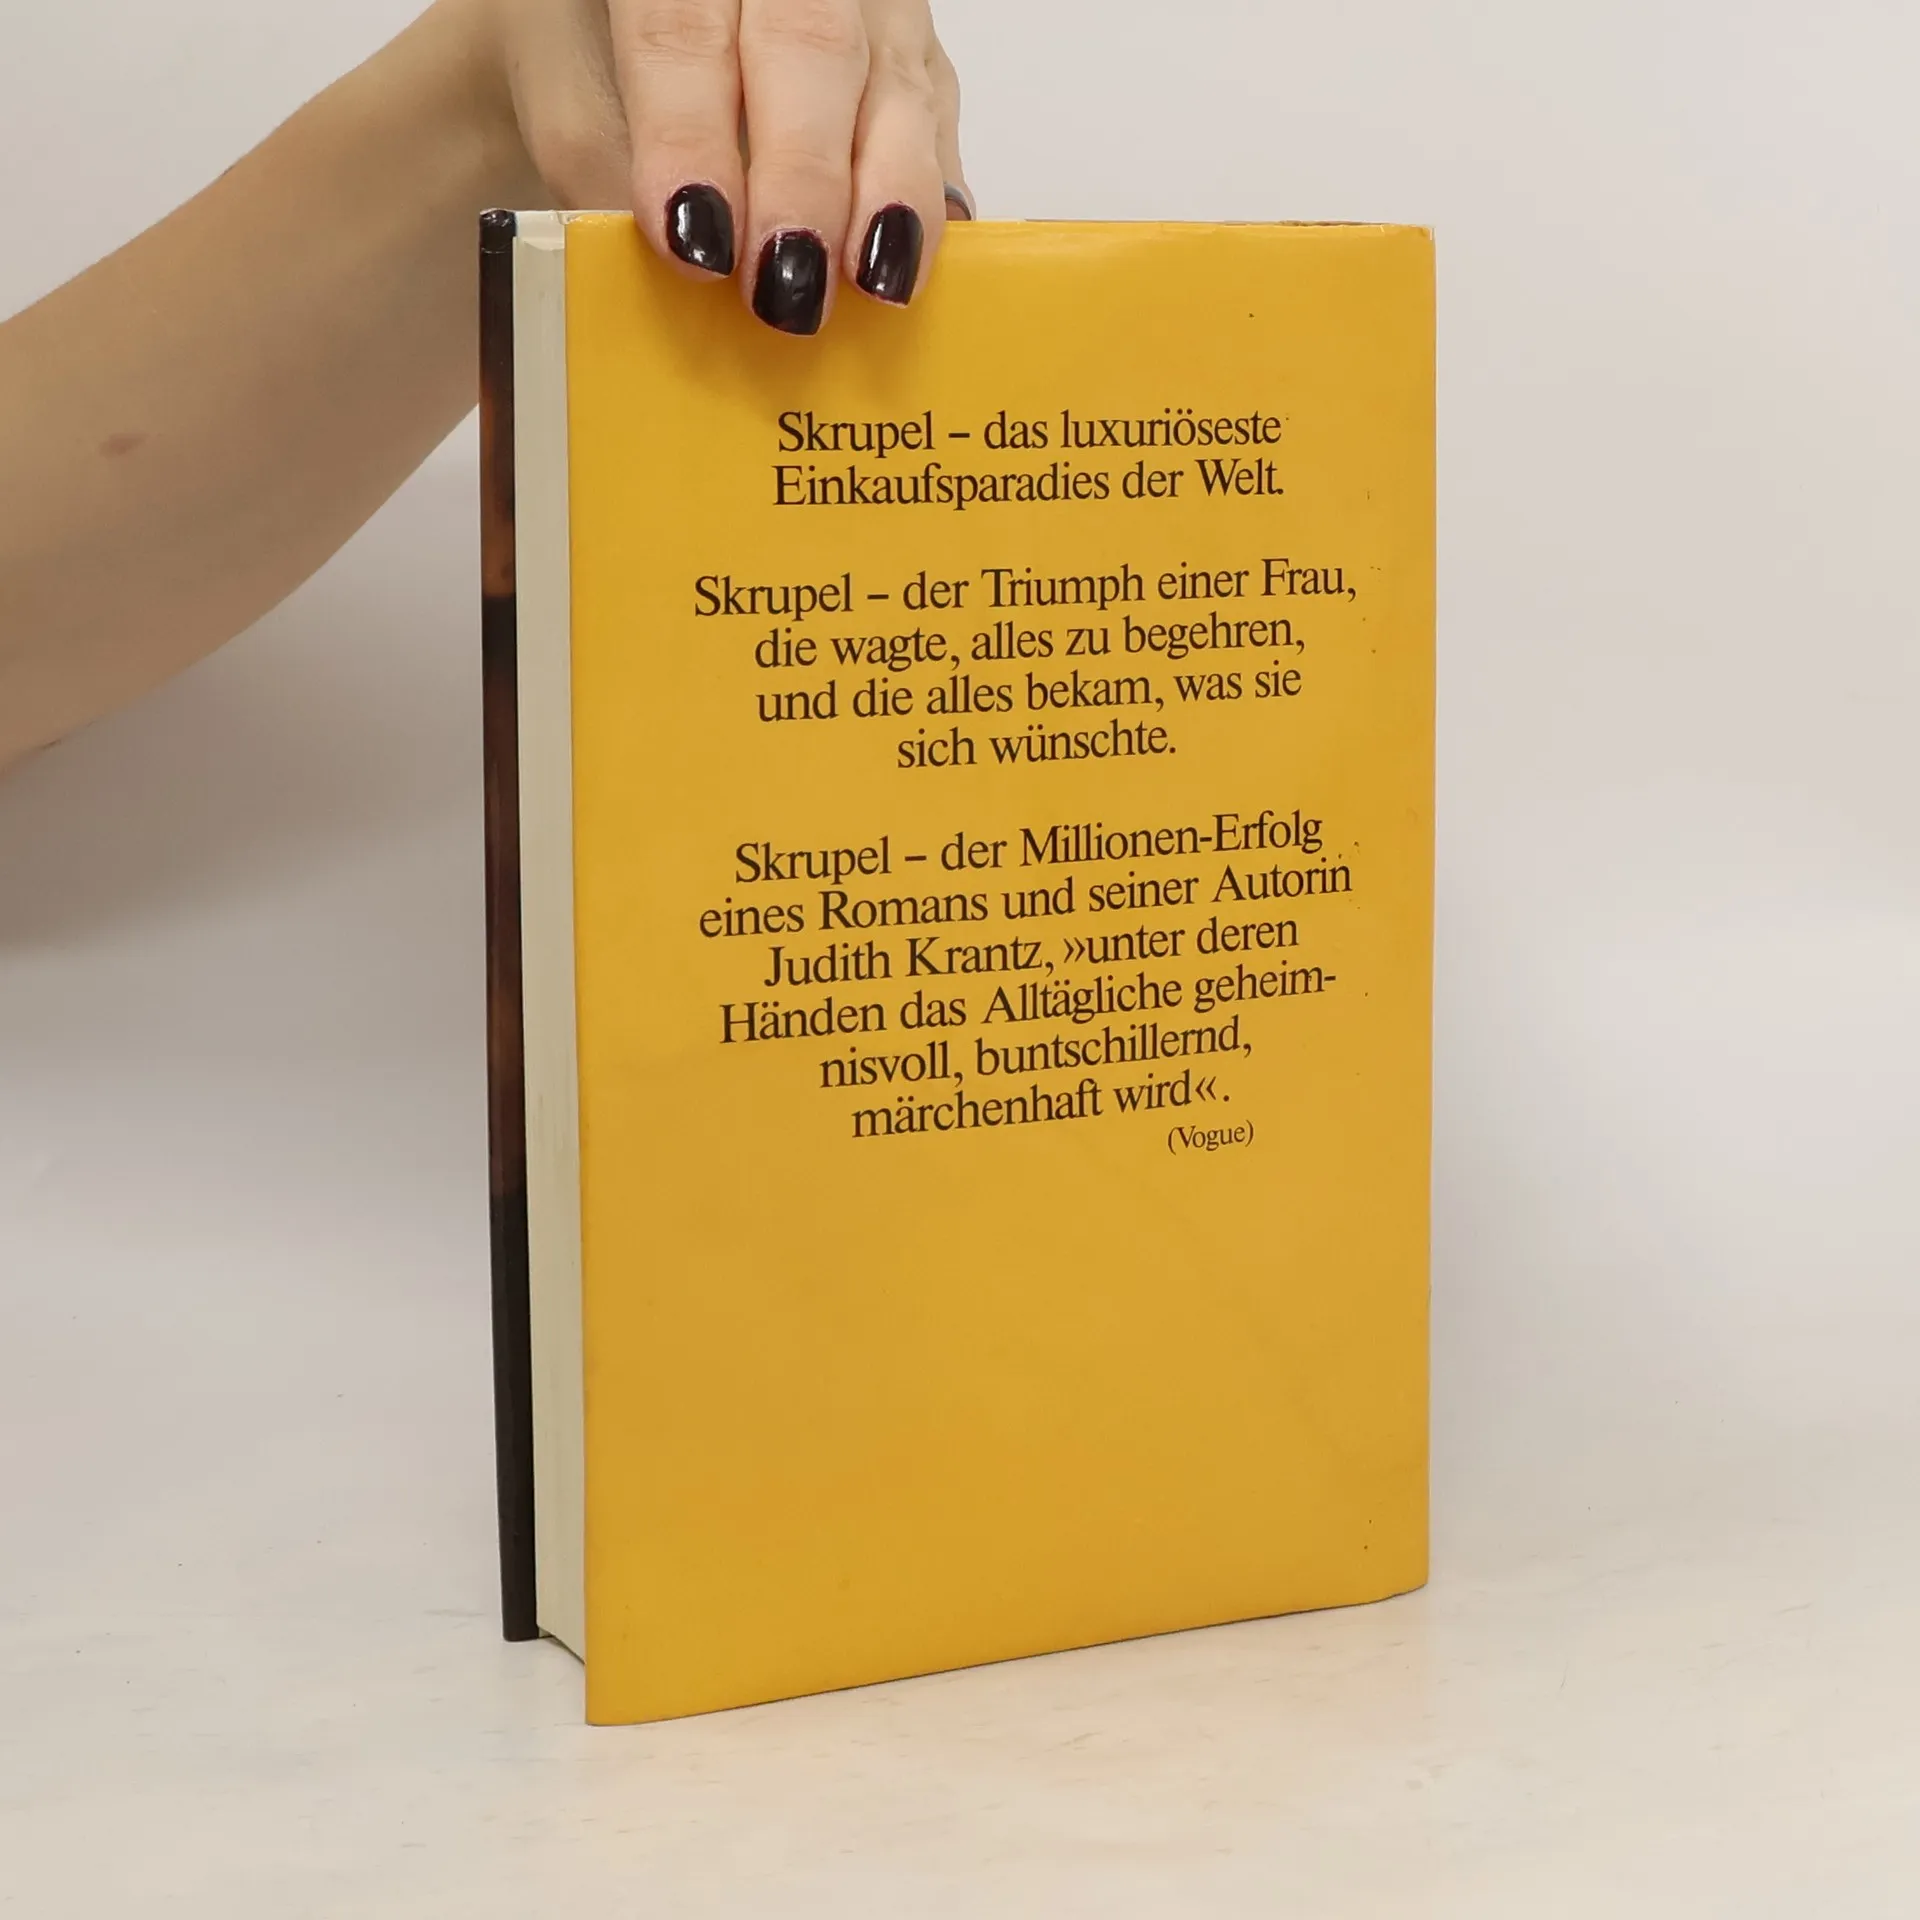 Skrupel – das luxuriöseste
Einkaufsparadies der Welt.
Skrupel – der Triumph einer Frau,
die wagte, alles zu begehren,
und die alles bekam, was sie
sich wünschte.
Skrupel – der Millionen-Erfolg
eines Romans und seiner Autorin
Judith Krantz, »unter deren
Händen das Alltägliche geheim-
nisvoll, buntschillernd,
märchenhaft wird«.
(Vogue)